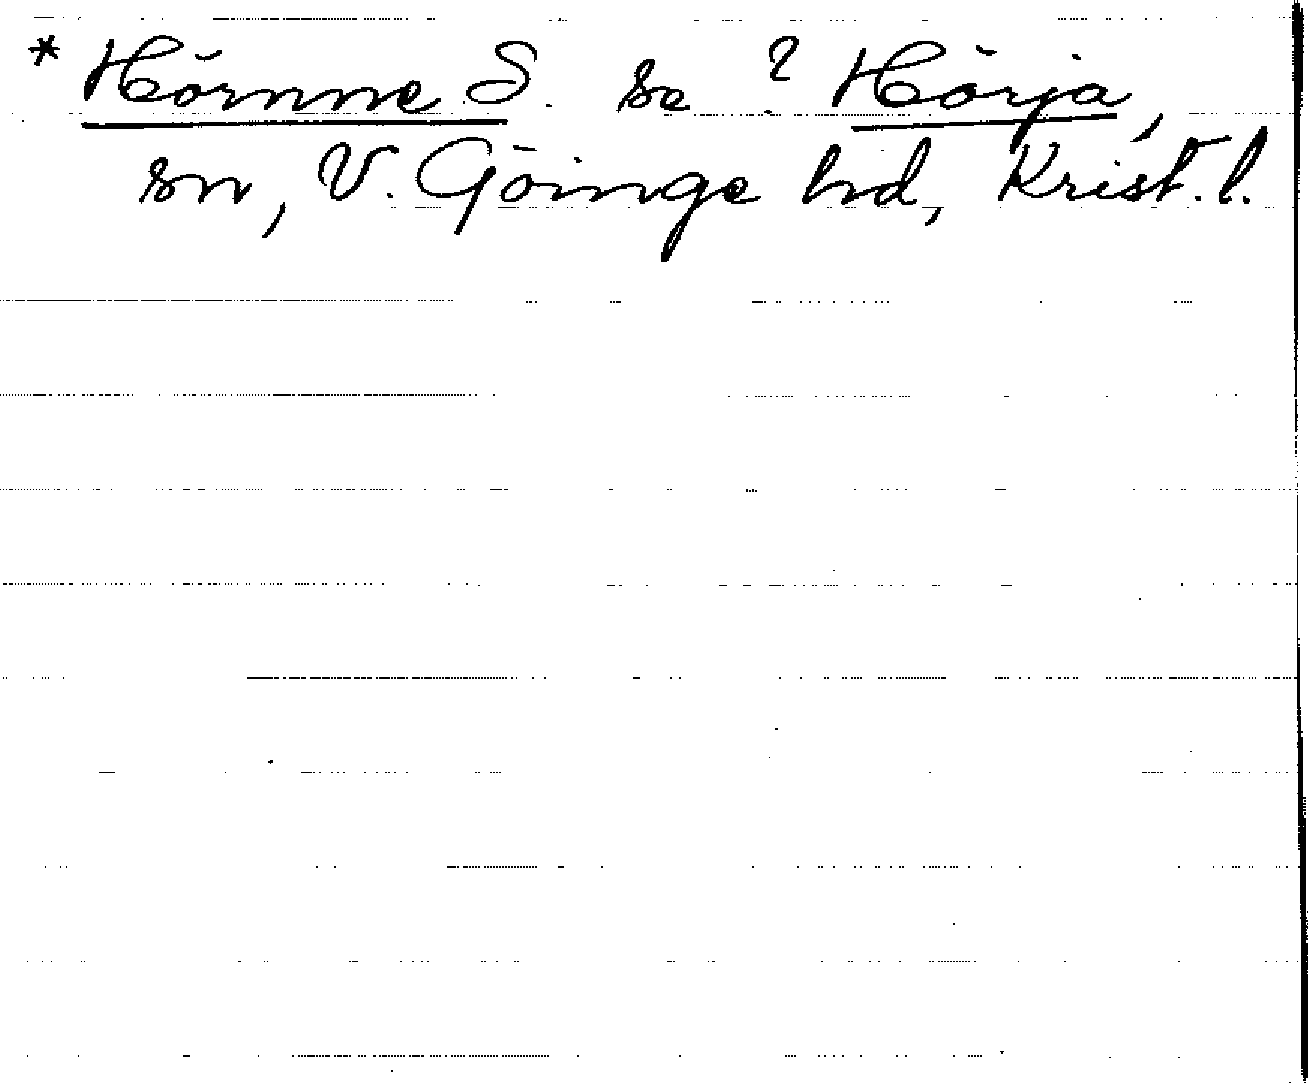 * Hörnne S. se ? Hörja,
sn, V. Göinge hd, Krist. l.